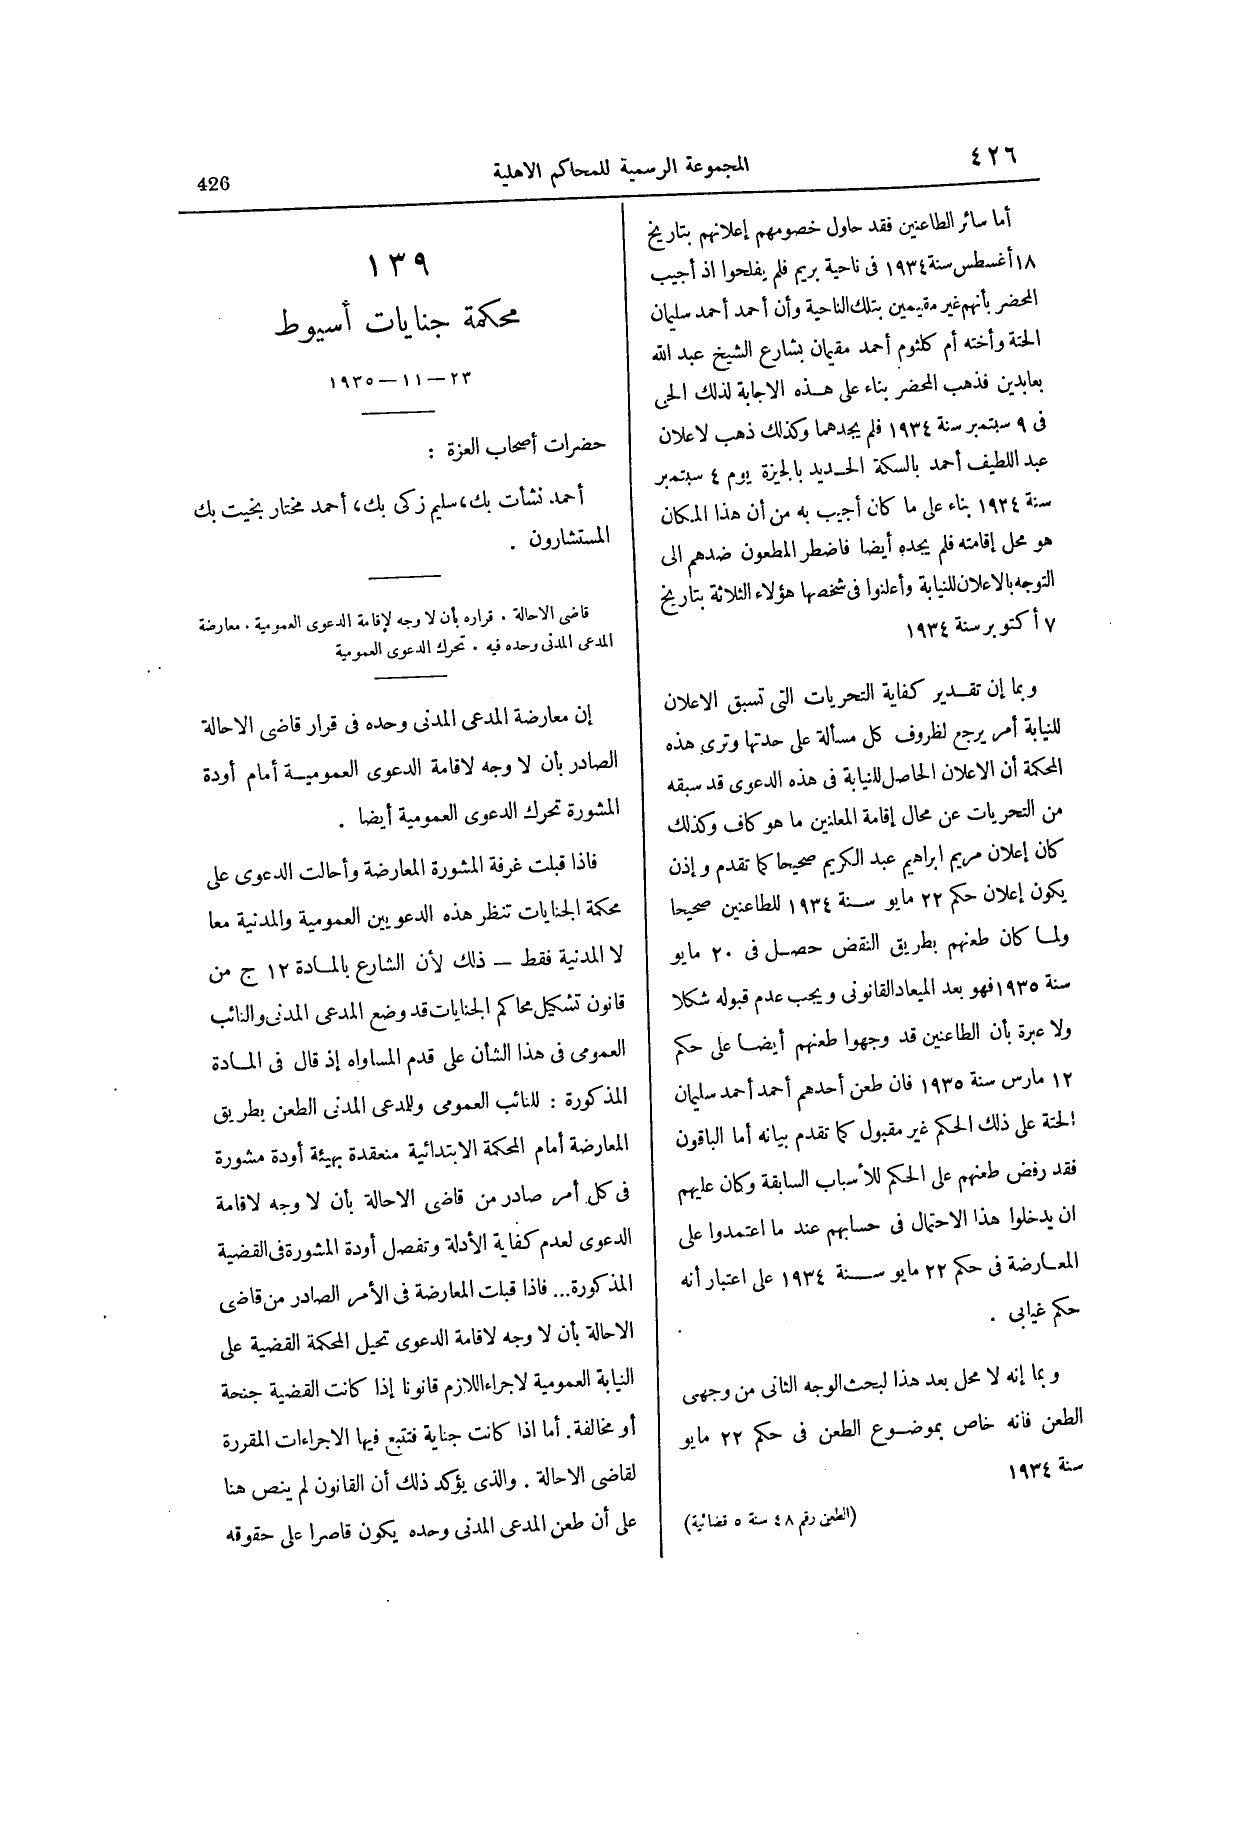 ٤٢٦
المجموعة الرسمية للمحاكم الاهلية
426
أما سائر الطاعنين فقد حاول خصومهم إعلانهم بتاريخ
١٨ أغسطس سنة ١٩٣٤ فى ناحية بريم فلم يفلحوا اذ أجيب
المحضر بأنهم غير مقيمين بتلك الناحية وأن أحمد أحمد سليمان
الحتة وأخته أم كلثوم أحمد مقيمان بشارع الشيخ عبد الله
بعابدين فذهب المحضر بناء على هـذه الاجابة لذلك الحى
فى ٩ سبتمبر سنة ١٩٣٤ فلم يجدهما وكذلك ذهب لاعلان
عبد اللطيف أحمد بالسكة الحـديد بالجيزة يوم ٤ سبتمبر
سنة ١٩٣٤ بناء على ما كان أجيب به من أن هذا المكان
هو محل إقامته فلم يجده أيضا فاضطر المطعون ضدهم الى
التوجه بالاعلان للنيابة وأعلنوا فى شخصها هؤلاء الثلاثة بتاريخ
٧ أكتوبر سنة ١٩٣٤
وبما إن تقـدير كفاية التحريات التى تسبق الاعلان
للنيابة أمر يرجع لظروف كل مسألة على حدتها وترى هذه
المحكمة أن الاعلان الحاصل للنيابة فى هذه الدعوى قد سبقه
من التحريات عن محال إقامة المعلنين ما هو كاف وكذلك
كان إعلان مريم ابراهيم عبد الكريم صحيحا كما تقدم وإذن
يكون إعلان حكم ٢٢ مايو سـنة ١٩٣٤ للطاعنين صحيحا
ولمـا كان طعنهم بطريق النقض حصـل فى ٢٠ مايو
سنة ١٩٣٥ فهو بعد الميعاد القانونى ويجب عدم قبوله شكلا
ولا عبرة بأن الطاعنين قد وجهوا طعنهم أيضـا على حكم
١٢ مارس سنة ١٩٣٥ فان طعن أحدهم أحمد أحمد سليمان
الحتة على ذلك الحكم غير مقبول كما تقدم بيانه أما الباقون
فقد رفض طعنهم على الحكم للأسباب السابقة وكان عليهم
ان يدخلوا هذا الاحتمال فى حسابهم عند ما اعتمدوا على
المعـارضة فى حكم ٢٢ مايو سـنة ١٩٣٤ على اعتبار أنه
حكم غيابى .
وبما إنه لا محل بعد هذا لبحث الوجه الثانى من وجهى
الطعن فانه خاص بموضـوع الطعن فى حكم ٢٢ مايو
سنة ١٩٣٤
(الطعن رقم ٤٨ سنة ٥ قضائية)
١٣٩
محكمة جنايات أسيوط
٢٣ — ١١ — ١٩٣٥
حضرات أصحاب العزة :
أحمد نشأت بك، سليم زكى بك، أحمد مختار بخيت بك
المستشارون .
قاضى الاحالة . قراره بأن لا وجه لإقامة الدعوى العمومية . معارضة
المدعى المدنى وحده فيه . تحرك الدعوى العمومية
إن معارضة المدعى المدنى وحده فى قرار قاضى الاحالة
الصادر بأن لا وجه لاقامة الدعوى العموميـة أمام أودة
المشورة تحرك الدعوى العمومية أيضا .
فاذا قبلت غرفة المشورة المعارضة وأحالت الدعوى على
محكمة الجنايات تنظر هذه الدعويين العمومية والمدنية معا
لا المدنية فقط — ذلك لأن الشارع بالمـادة ١٢ ج من
قانون تشكيل محاكم الجنايات قد وضع المدعى المدنى والنائب
العمومى فى هذا الشأن على قدم المساواه إذ قال فى المـادة
المذكورة : للنائب العمومى وللمدعى المدنى الطعن بطريق
المعارضة أمام المحكمة الابتدائية منعقدة بهيئة أودة مشورة
فى كل أمر صادر من قاضى الاحالة بأن لا وجه لاقامة
الدعوى لعدم كفاية الأدلة وتفصل أودة المشورة فى القضية
المذكورة... فاذا قبلت المعارضة فى الأمر الصادر من قاضى
الاحالة بأن لا وجه لاقامة الدعوى تحيل المحكمة القضية على
النيابة العمومية لاجراء اللازم قانونا إذا كانت القضية جنحة
أو مخالفة. أما اذا كانت جناية فتتبع فيها الاجراءات المقررة
لقاضى الاحالة . والذى يؤكد ذلك أن القانون لم ينص هنا
على أن طعن المدعى المدنى وحده يكون قاصرا على حقوقه